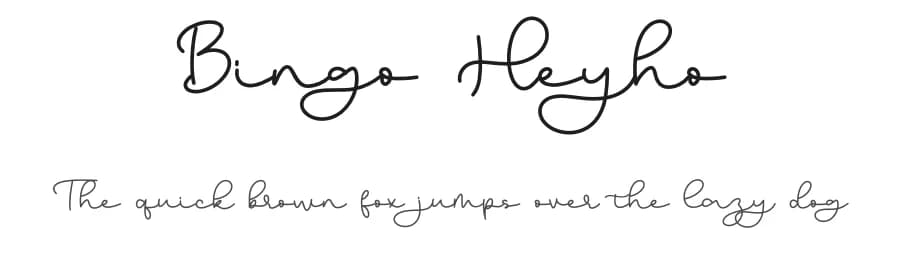 Bingo Heyho
The quick brown fox jumps over the lazy dog